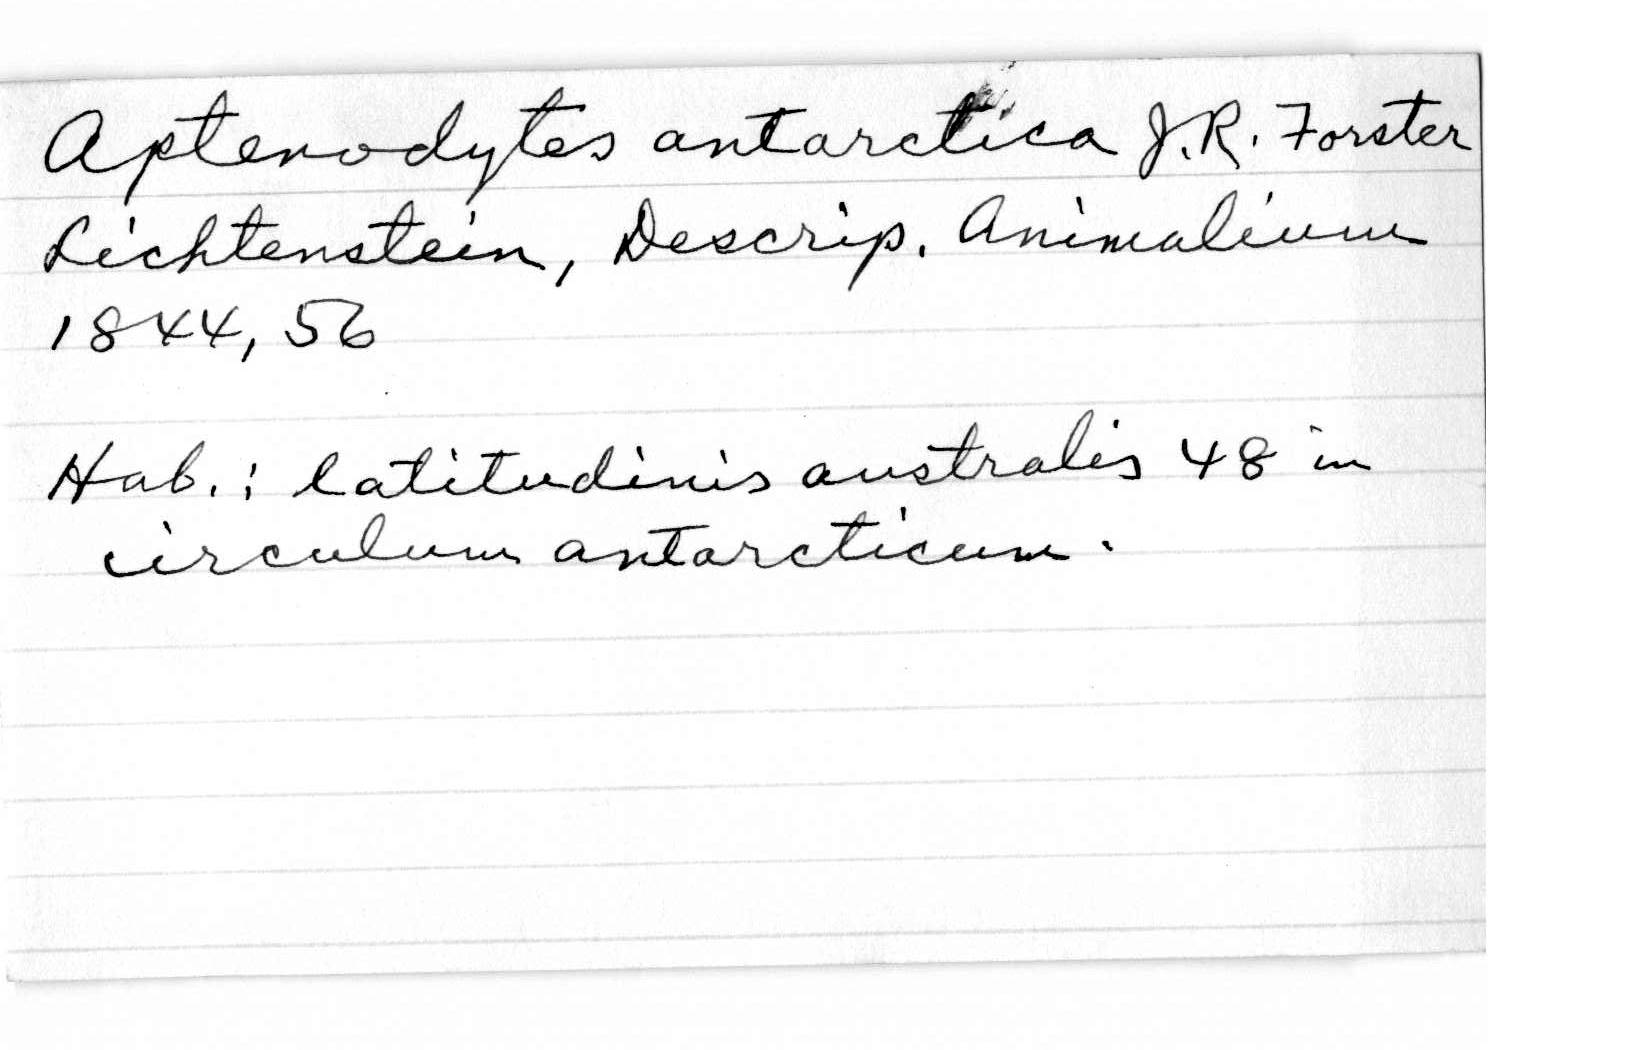 Aptenodytes antarctica J.R. Forster
Lichtenstein, Descrip. Animalium
1844, 56
Hab.: latitudinis australis 48 in
circulum antarcticum.